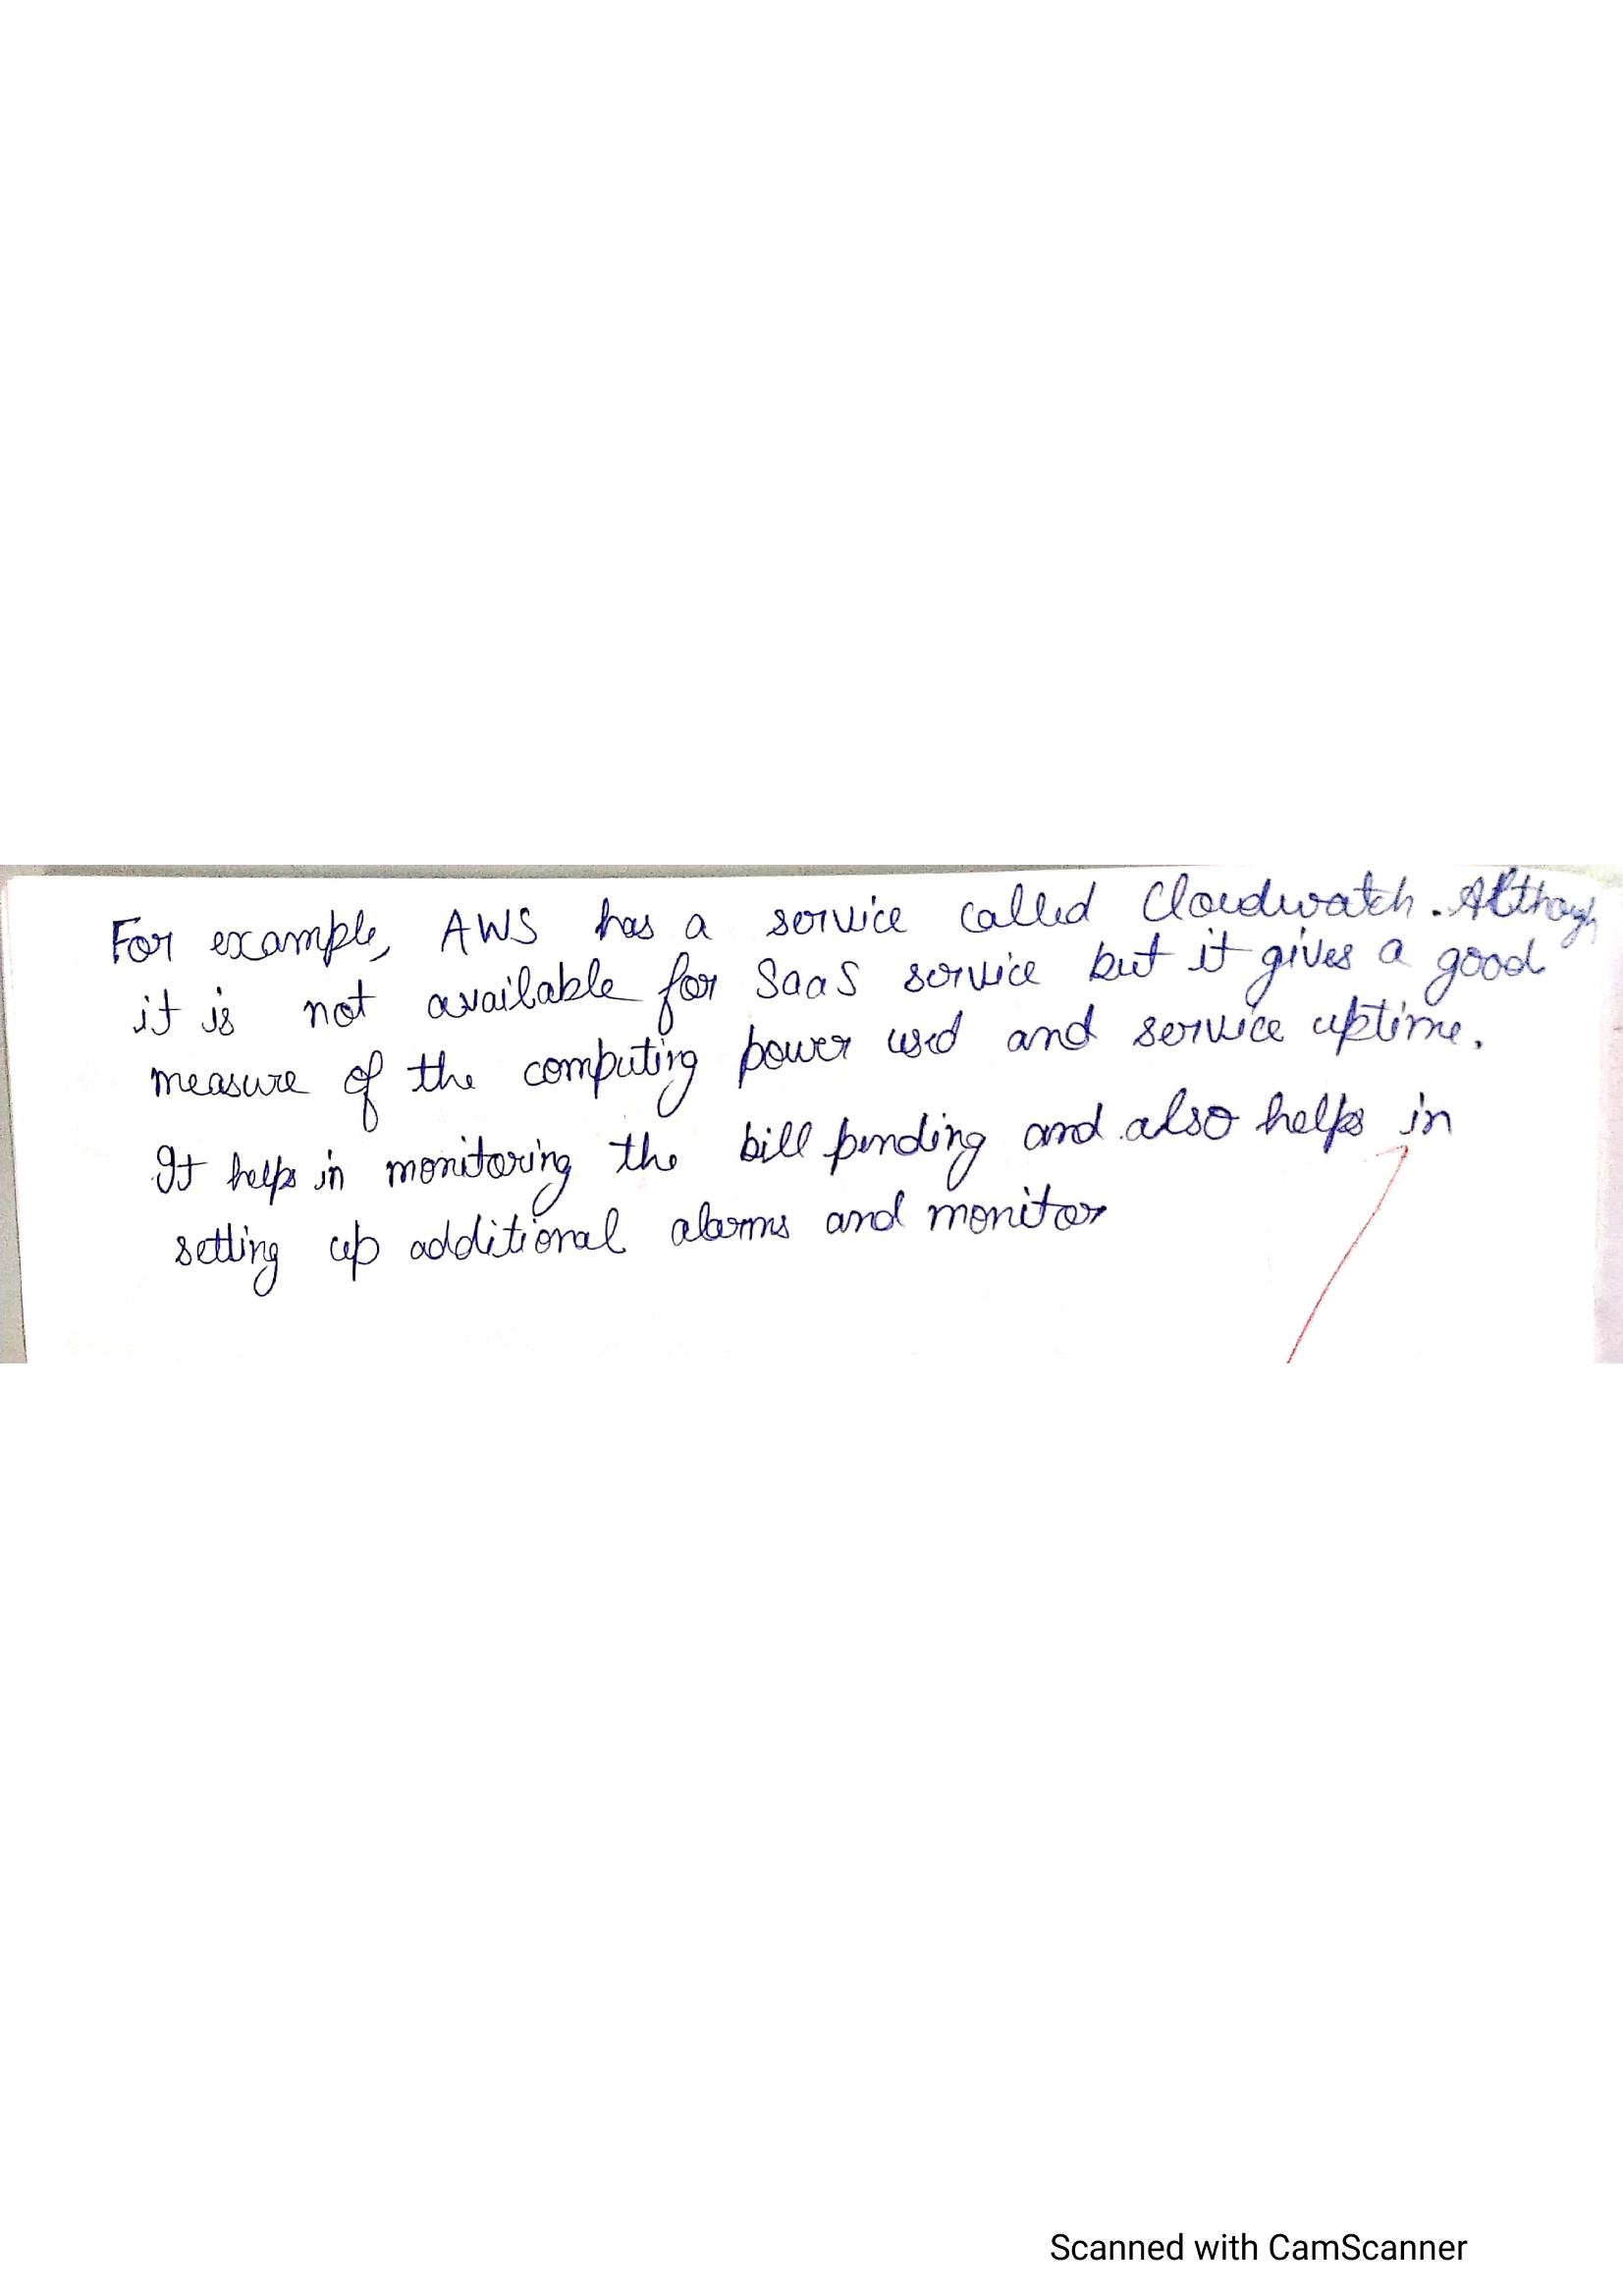 For example, AWS has a service called Cloudwatch. Although
it is not available for SaaS service but it gives a good
measure of the computing power used and service uptime.
It helps in monitoring the bill pending and also helps in
setting up additional alarms and monitor
Scanned with CamScanner